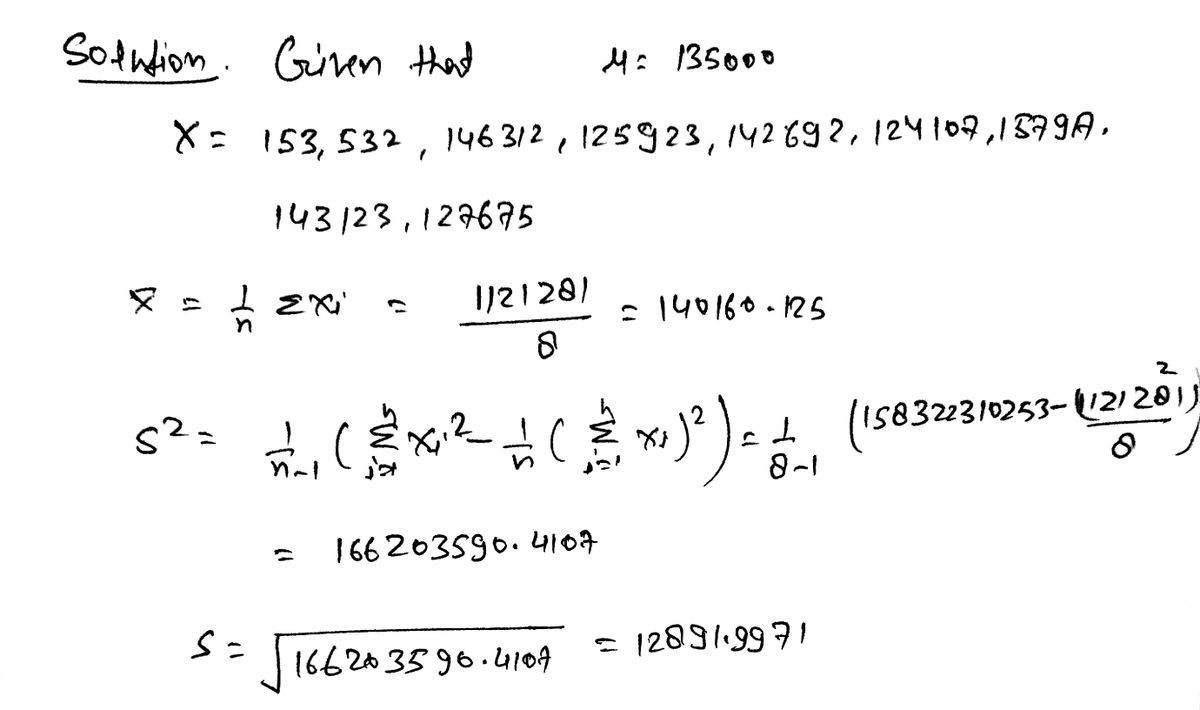 Solution. Given that μ = 135000
X = 153,532, 146312, 125923, 142692, 124107,
143123, 127675
x̄ = 1/n Σxi = 1121281/8 = 140160.125
S² = 1/(n-1) (Σ_{i=1}^{n} xi² - 1/n (Σ_{i=1}^{n} xi)²) = 1/(8-1) (158322310253 - (1121281)²/8)
= 166203590.4107
S = √166203590.4107 = 12891.9971